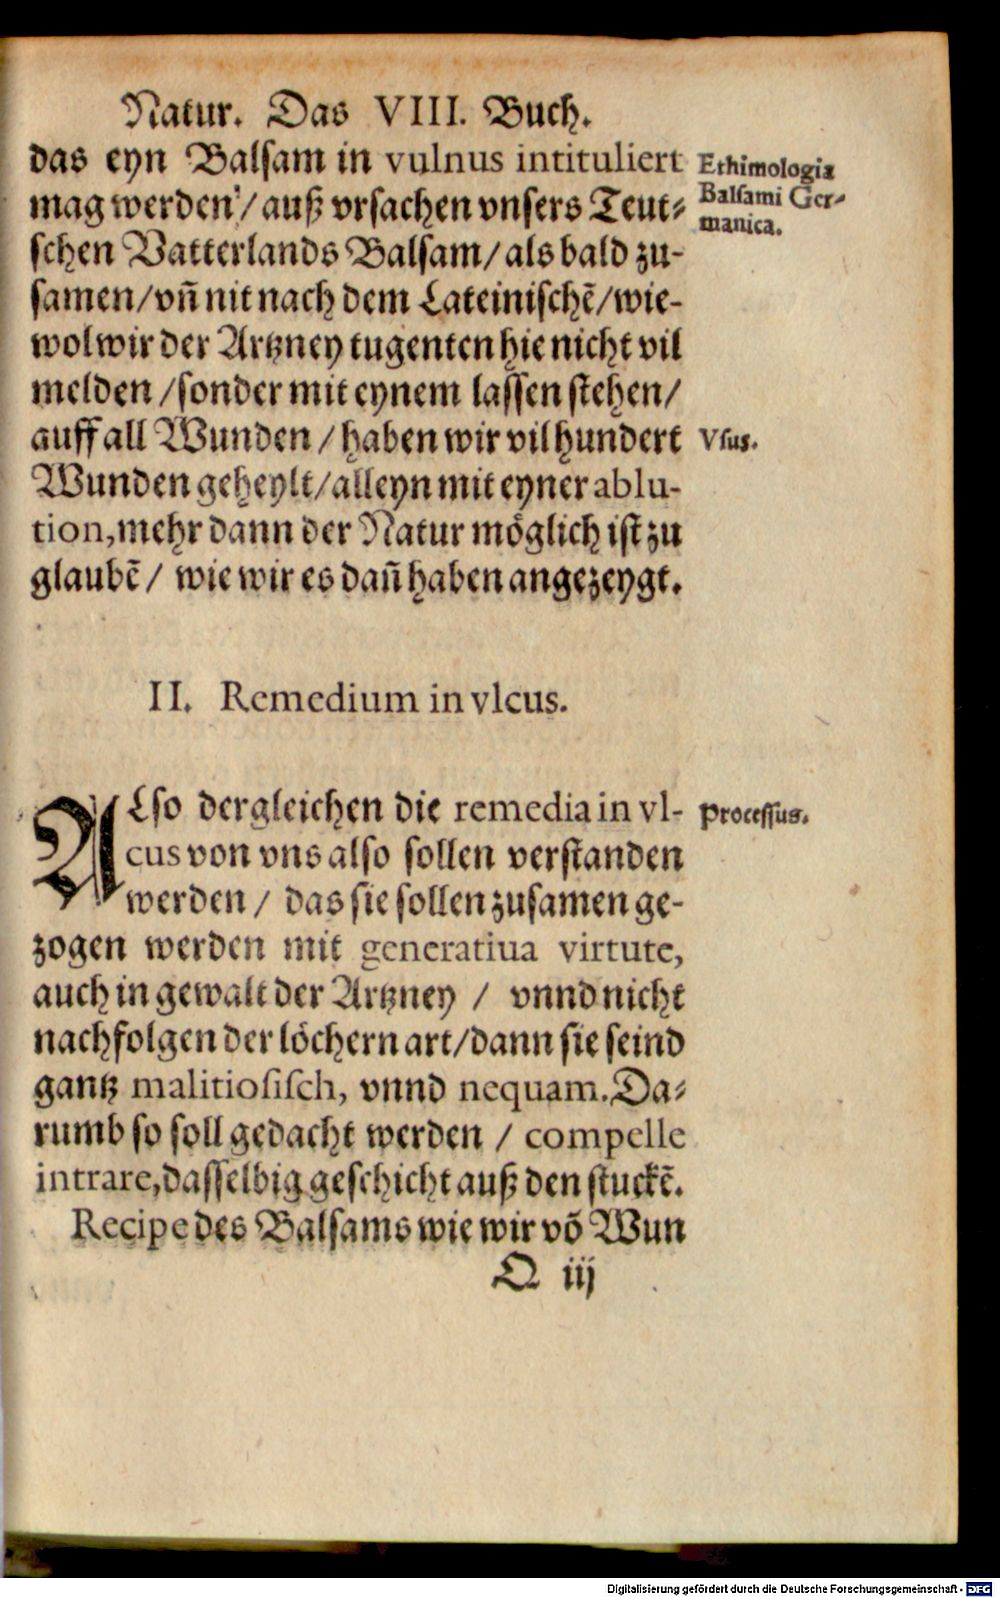 Natur. Das VIII. Buch.
das eyn Balsam in vulnus intituliert
mag werden / auß vrsachen vnsers Teut-
schen Vatterlands Balsam / als bald zu-
samen / vñ nit nach dem Lateinischẽ / wie-
wol wir der Artzney tugenten hie nicht vil
melden / sonder mit eynem lassen stehen /
auff all Wunden / haben wir vil hundert
Wunden geheylt / alleyn mit eyner ablu-
tion, mehr dann der Natur möglich ist zu
glaubẽ / wie wir es dañ haben angezeygt.
Ethimologia
Balsami Ger-
manica.
Vsus.
II. Remedium in vlcus.
ALso dergleichen die remedia in vl-
cus von vns also sollen verstanden
werden / das sie sollen zusamen ge-
zogen werden mit generatiua virtute,
auch in gewalt der Artzney / vnnd nicht
nachfolgen der löchern art / dann sie seind
gantz malitiosisch, vnnd nequam. Da-
rumb so soll gedacht werden / compelle
intrare, dasselbig geschicht auß den stuckẽ.
Recipe des Balsams wie wir võ Wun
Processus.
Q iij
Digitalisierung gefördert durch die Deutsche Forschungsgemeinschaft - DFG